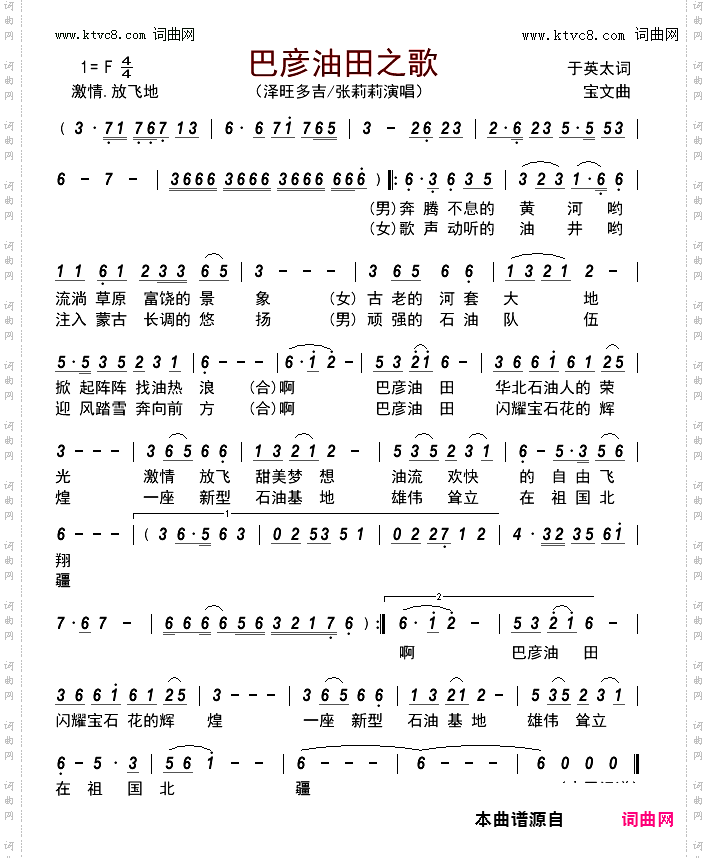 www.ktvc8.com 词曲网
www.ktvc8.com 词曲网
巴彦油田之歌
1=F 4/4
于英太词
激情.放飞地
（泽旺多吉/张莉莉演唱）
宝文曲
( 3 · 71 767 13 | 6 · 6 71 765 | 3 - 26 23 | 2 · 6 23 5 · 5 53 |
6 - 7 - | 3666 3666 3666 666 ) |: 6 · 3 6 35 | 323 1 · 6 6 |
(男)奔 腾 不息的 黄 河 哟
(女)歌 声 动听的 油 井 哟
11 61 233 65 | 3 - - - | 3 65 6 6 · | 1321 2 - |
流淌 草原 富饶的 景 象 (女) 古 老的 河套 大 地
注入 蒙古 长调的 悠 扬 (男) 顽 强的 石油 队 伍
5 · 5 35 2 31 | 6 · - - - | 6 · 1 2 - | 53 21 6 - | 366 1 61 25 |
掀 起阵阵 找油热 浪 (合)啊 巴彦油 田 华北石油人的 荣
迎 风踏雪 奔向前 方 (合)啊 巴彦油 田 闪耀宝石花的 辉
3 - - - | 365 66 · | 13 21 2 - | 535 231 | 6 - 5 · 3 | 565 3 - |
光 激情 放飞 甜美梦 想 油流 欢快 的 自由飞
煌 一座 新型 石油基 地 雄伟 耸立 在 祖国北
1
6 - - - | ( 36 · 5 63 | 02 53 51 | 02 27 12 | 4 · 32 3561 |
翔
疆
2
7 · 67 - - | 6665 6656 3217 6 · ) :| 6 · 1 2 - | 53 21 6 - |
啊 巴彦油 田
366 1 61 25 | 3 - - - | 365 66 · | 13 21 2 - | 535 231 |
闪耀宝石 花的辉 煌 一座 新型 石油 基 地 雄伟 耸立
6 - 5 · 3 | 56 1 - - | 6 - - - | 6 - - - | 6 0 0 0 |
在 祖 国 北 疆
本曲谱源自 词曲网